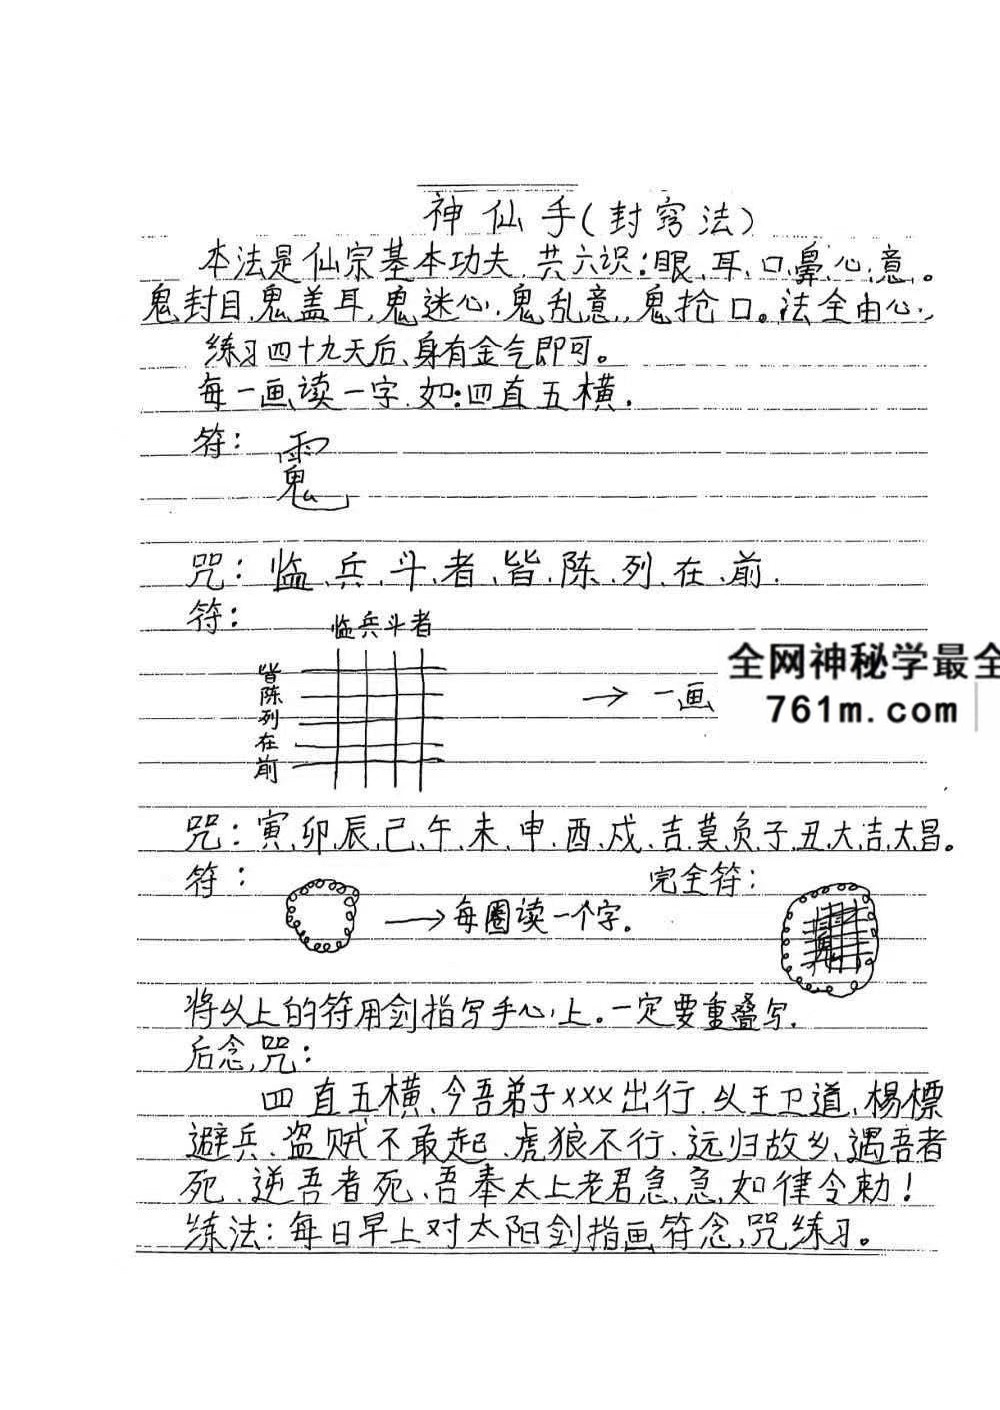 神仙手(封窍法)
本法是仙宗基本功夫.共六识:眼、耳、口鼻、心、意。
鬼封目、鬼盖耳,鬼迷心、鬼乱意,鬼抢口。法全由心,
练习四十九天后、身有金气即可。
每一画读一字.如:四直五横.
符:
咒:临、兵、斗、者、皆、陈、列、在、前.
符:
临兵斗者
皆陈列在前
→一画
全网神秘学最全
761m.com
咒:寅、卯、辰、己、午、未、申、酉、戌、吉、莫、负、子、丑、大、吉、大昌。
符:
→每圈读一个字.
完全符:
将以上的符用剑指写手心上。一定要重叠写.
后念咒:
四直五横、今吾弟子xxx出行.以王卫道、楊標
避兵、盗贼不敢起、虎狼不行、远归故乡、遇吾者
死、逆吾者死、吾奉太上老君急急如律令勅!
练法:每日早上对太阳剑指画符念咒练习。